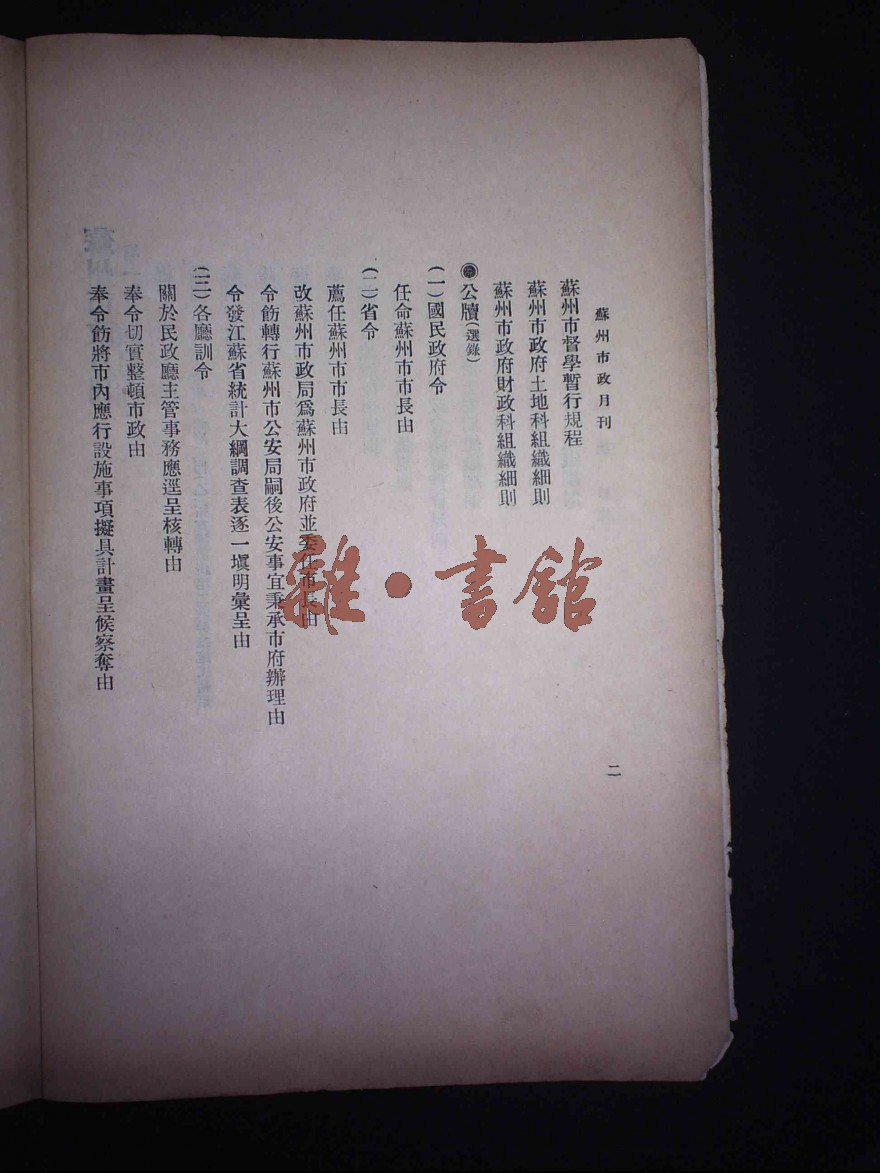 蘇州市政月刊
二
蘇州市督學暫行規程
蘇州市政府土地科組織細則
蘇州市政府財政科組織細則
公牘(選錄)
(一)國民政府令
任命蘇州市市長由
(二)省令
薦任蘇州市市長由
改蘇州市政局爲蘇州市政府並委任市長由
令飭轉行蘇州市公安局嗣後公安事宜秉承市府辦理由
令發江蘇省統計大綱調查表逐一塡明彙呈由
(三)各廳訓令
關於民政廳主管事務應逕呈核轉由
奉令切實整頓市政由
奉令飭將市內應行設施事項擬具計畫呈候察奪由
雜·書館